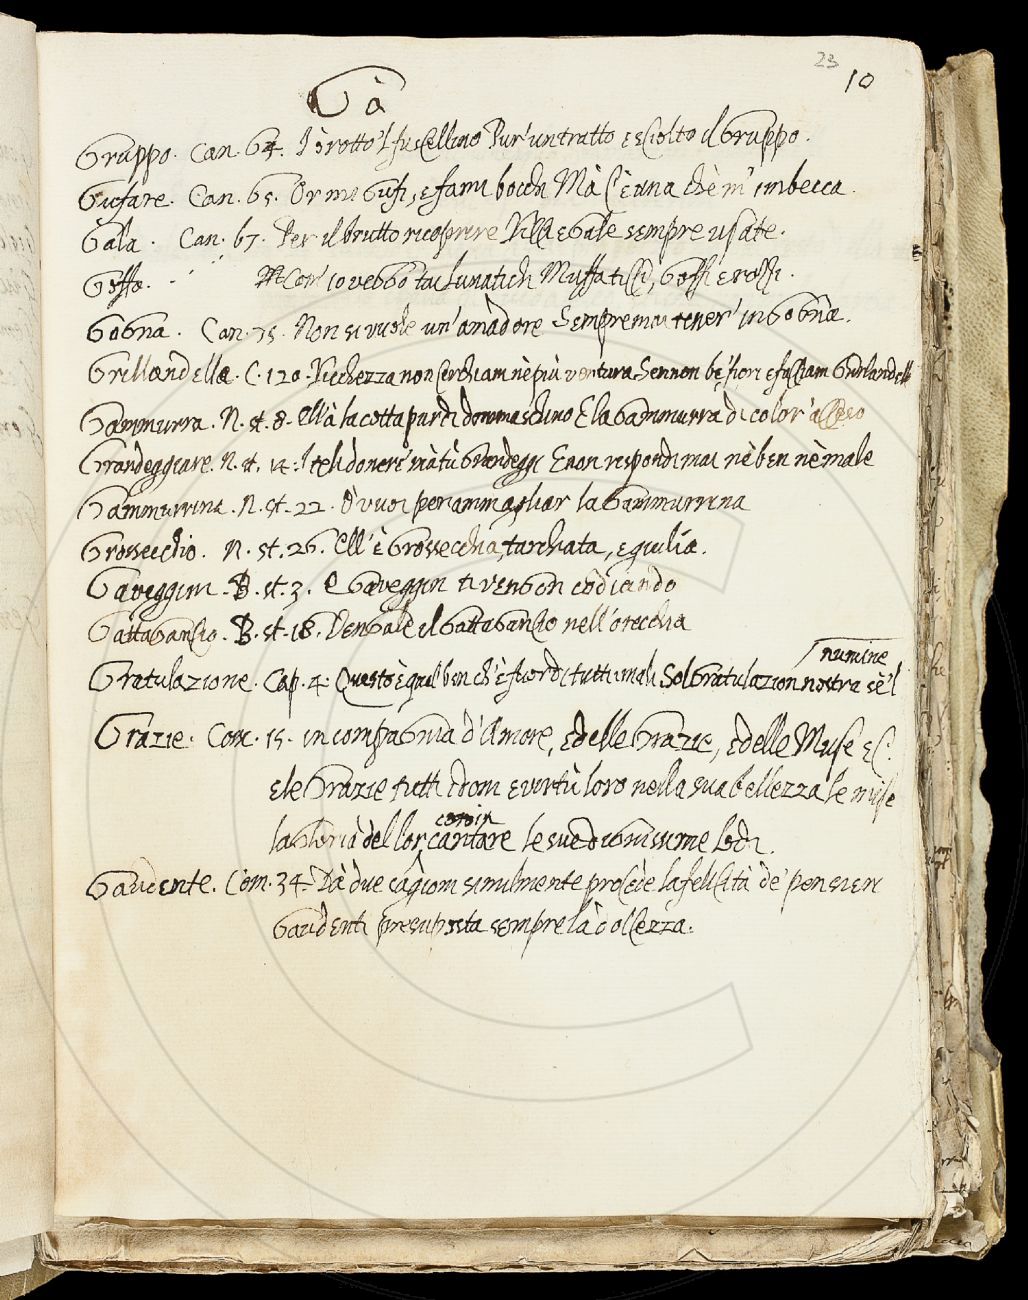 23
10
Gà
Gruppo. Can. 64. I' ò rotto 'l fuscellino Pur' un tratto e sciolto il Gruppo.
Gufare. Can. 65. Or mi Gufi, e fami bocchi Mà c'è una chè m' imbecca.
Gala. Can. 67. Per il brutto ricoprire Gale sempre usate.
Goffo. Com' io vebbo tai lunatichi Muffaticci, Goffi e rossi.
Gogna. Can. 75. Non si vuole un' amadore Sempre mai tener' in Gogna.
Grillandella. C. 120. Richezza non cerchiam nè più ventura Se non be' fiori e facciam Ghirlandelle
Gammurra. N. st. 8. Ell' à la cotta pur di dommaschino E la Gammurra di color'
Grandeggiare. N. st. 14. I te li donerò mà tù Grandeggi E non rispondi mai nè ben nè male
Gammurrina. N. st. 22. O vuoi per ammagliar la Gammurrina
Grossecchio. N. st. 26. Ell' è Grossecchia, tarchiata, e giulia.
Gaveggini. B. st. 3. E Gaveggin ti vengon codiando
Gattagancio. B. st. 18. Vengale il Gattagancio nell' orecchia
numine
Gratulazione. Cap. 4. Questo è quel ben ch' è fuor di tutti i mali Sol Gratulazion nostra sè 'l
Grazie. Com. 15. in compagnia d' Amore, e delle Grazie, e delle Muse ec.
e le Grazie tutti i doni e virtù loro nella sua bellezza le mise
la Gloria del lor cantare le sue dignissime lodi.
Gaudente. Com. 34. Dà due cagioni similmente procede la felicità de' pensieri
Gaudenti presuposta sempre la dolcezza.